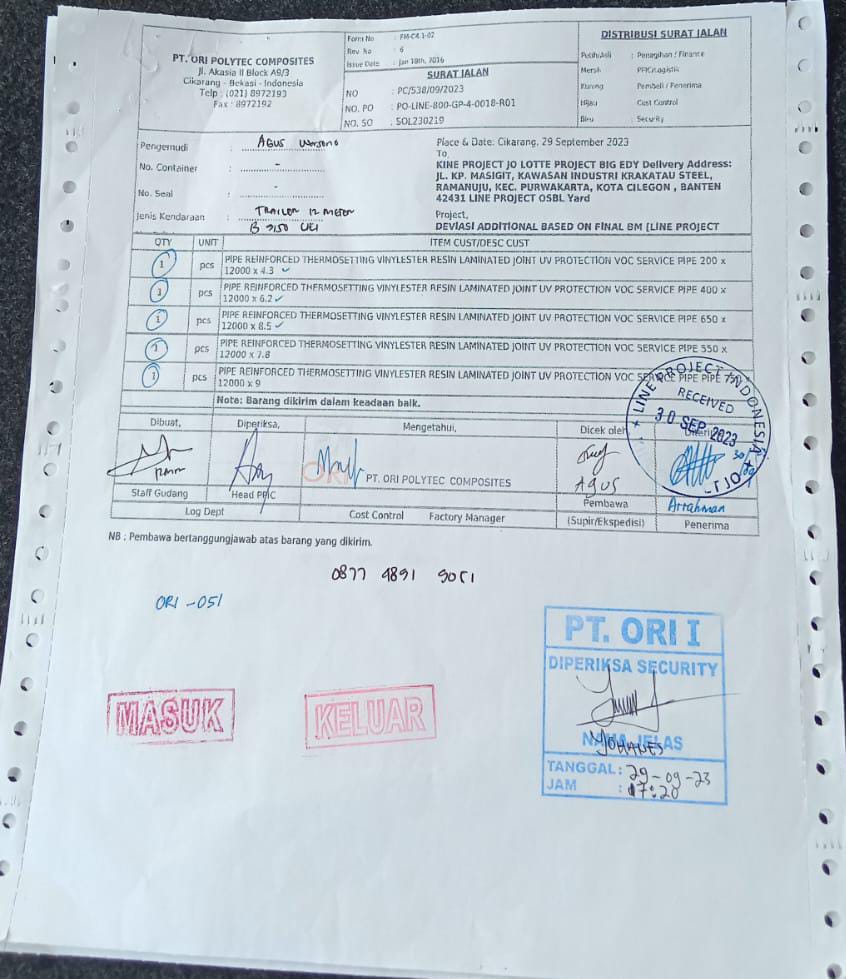 PT. ORI POLYTEC COMPOSITES
Jl. Akasia II Block A9/3
Cikarang - Bekasi - Indonesia
Telp : (021) 8972193
Fax : 8972192
Form No : FM-C4.1-02
Rev No : 6
Issue Date : Jan 18th, 2016
SURAT JALAN
NO : PC/538/09/2023
NO. PO : PO-LINE-800-GP-4-0018-R01
NO. SO : SOL230219
DISTRIBUSI SURAT JALAN
Putih/Asli : Penagihan / Finance
Merah : PPIC/Logistik
Kuning : Pembeli / Penerima
Hijau : Cost Control
Biru : Security
Pengemudi : AGUS
No. Container : -
No. Seal : -
Jenis Kendaraan : TRAILER 12 METER
B 9150 UEI
Place & Date: Cikarang, 29 September 2023
To,
KINE PROJECT JO LOTTE PROJECT BIG EDY Delivery Address:
JL. KP. MASIGIT, KAWASAN INDUSTRI KRAKATAU STEEL,
RAMANUJU, KEC. PURWAKARTA, KOTA CILEGON , BANTEN
42431 LINE PROJECT OSBL Yard
Project,
DEVIASI ADDITIONAL BASED ON FINAL BM [LINE PROJECT
QTY UNIT ITEM CUST/DESC CUST
1 pcs PIPE REINFORCED THERMOSETTING VINYLESTER RESIN LAMINATED JOINT UV PROTECTION VOC SERVICE PIPE 200 x
12000 x 4.3 ✓
1 pcs PIPE REINFORCED THERMOSETTING VINYLESTER RESIN LAMINATED JOINT UV PROTECTION VOC SERVICE PIPE 400 x
12000 x 6.2 ✓
1 pcs PIPE REINFORCED THERMOSETTING VINYLESTER RESIN LAMINATED JOINT UV PROTECTION VOC SERVICE PIPE 650 x
12000 x 8.5 ✓
1 pcs PIPE REINFORCED THERMOSETTING VINYLESTER RESIN LAMINATED JOINT UV PROTECTION VOC SERVICE PIPE 550 x
12000 x 7.8
1 pcs PIPE REINFORCED THERMOSETTING VINYLESTER RESIN LAMINATED JOINT UV PROTECTION VOC SERVICE PIPE PIPE
12000 x 9
Note: Barang dikirim dalam keadaan baik.
LINE PROJECT INDONESIA
RECEIVED
30 SEP 2023
Dibuat, Diperiksa, Mengetahui, Dicek oleh
PT. ORI POLYTEC COMPOSITES
AGUS
Arrahman
Staff Gudang Head PPIC Pembawa
Log Dept Cost Control Factory Manager (Supir/Ekspedisi) Penerima
NB : Pembawa bertanggungjawab atas barang yang dikirim.
0877 4891 9051
ORI - 051
MASUK
KELUAR
PT. ORI I
DIPERIKSA SECURITY
NAMA JELAS
YOHANES
TANGGAL : 29-09-23
JAM : 17:20